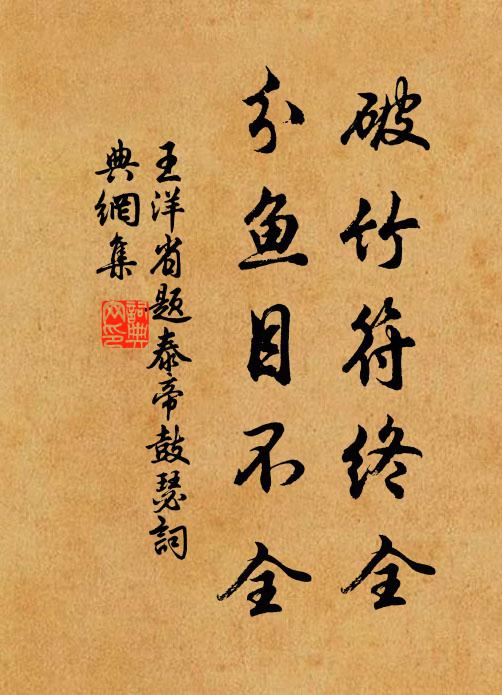 破竹符终全
分鱼目不全
王洋省题泰帝鼓瑟詞
典網集
詞典网印